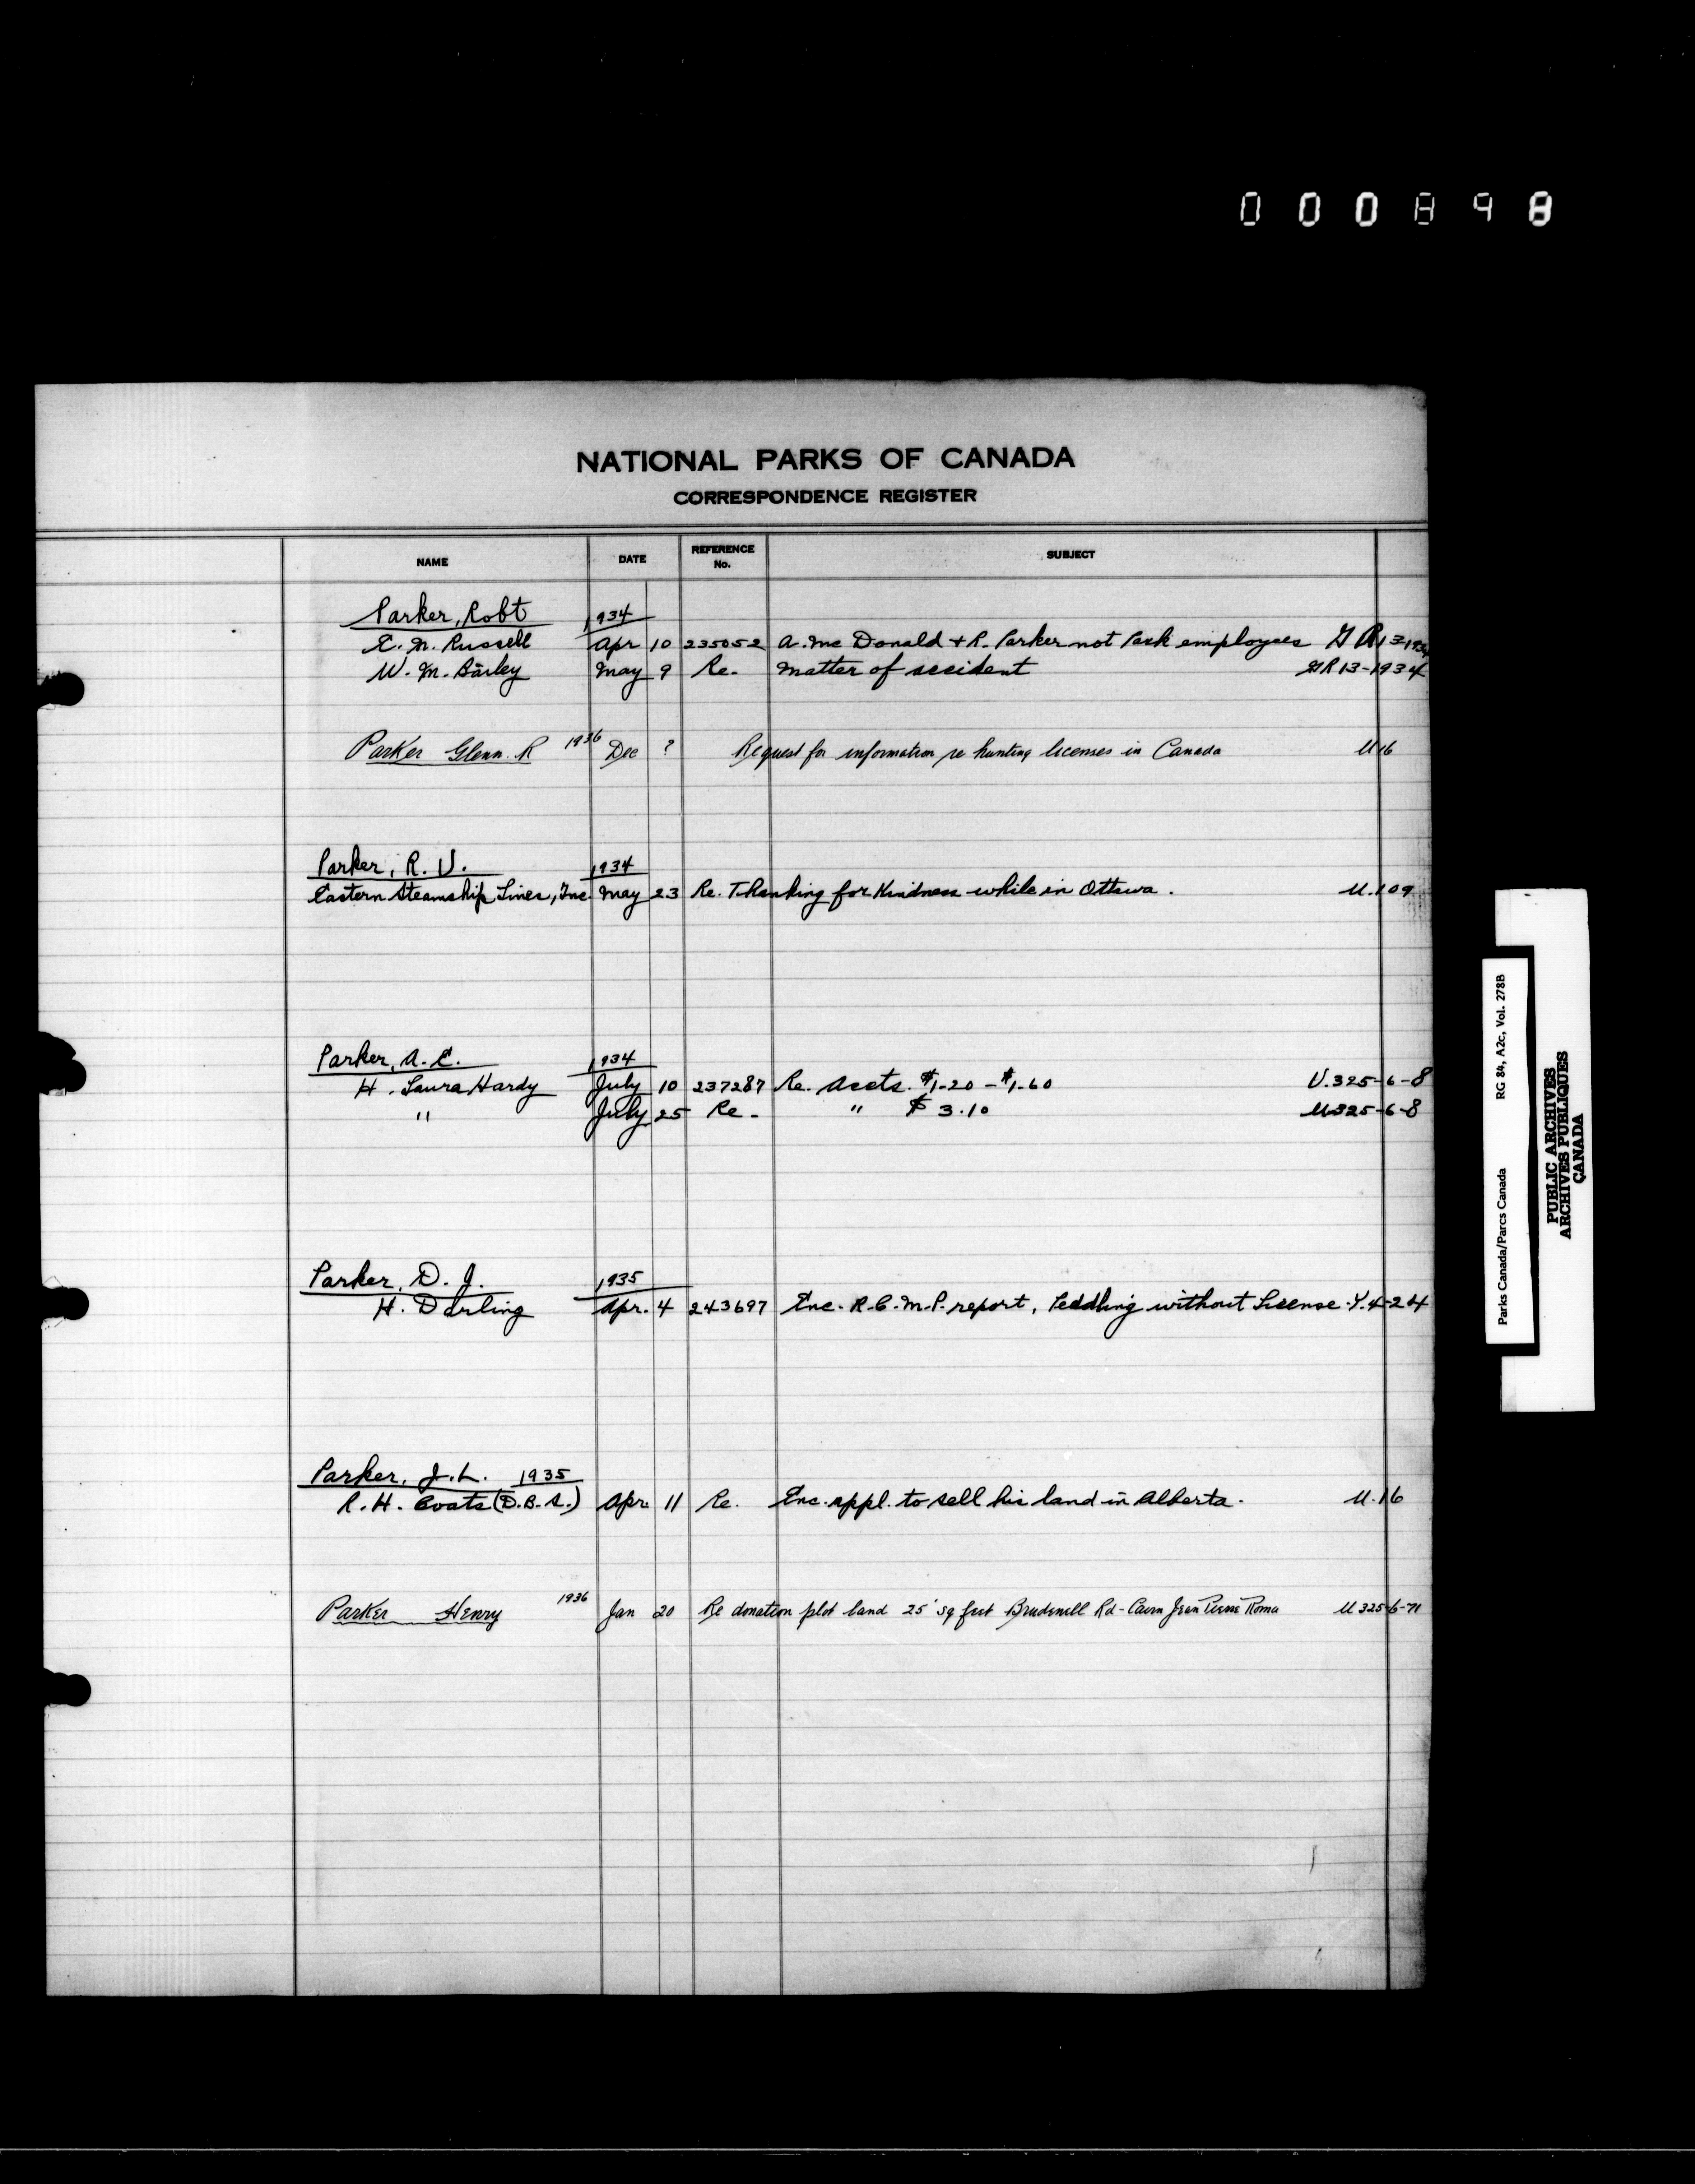 000898
NATIONAL PARKS OF CANADA
CORRESPONDENCE REGISTER
NAME DATE REFERENCE No. SUBJECT
Parker, Robt 1934
E. M. Russell Apr 10 235052 A. McDonald & R. Parker not Park employees GR13-1934
W. M. Barley May 9 Re. Matter of accident GR13-1934
Parker Glenn. R 1936 Dec ? Request for information re hunting licenses in Canada U16
Parker, R. V. 1934
Eastern Steamship Lines, Inc. May 23 Re. Thanking for Kindness while in Ottawa. U.109
Parker, A. E. 1934
H. Laura Hardy July 10 237287 Re. Accts. $1.20 - $1.60 U.325-6-8
" July 25 Re. " $3.10 U325-6-8
Parker, D. J. 1935
H. Darling Apr. 4 243697 Enc. R.C.M.P. report, Peddling without License. Y.4-264
Parker, J. L. 1935
R. H. Coats (D.B.S.) Apr. 11 Re. Enc. appl. to sell his land in Alberta. U.16
Parker Henry 1936 Jan 20 Re donation plot land 25' sq feet Brudenell Rd - Cairn Jean Pierre Roma U325-6-71
Parks Canada/Parcs Canada RG 84, A2c, Vol. 278B
PUBLIC ARCHIVES
ARCHIVES PUBLIQUES
CANADA